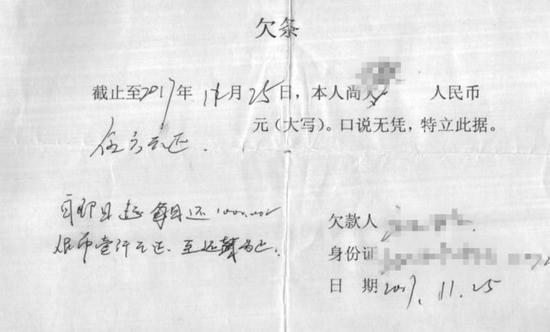 欠条
截止至2017年 11月25日,本人尚欠 人民币
伍万元正. 元(大写)。口说无凭,特立此据。
自即日起 每月还1000.00
人民币壹仟元正.至还清为止.
欠款人
身份证
日 期 2017.11.25